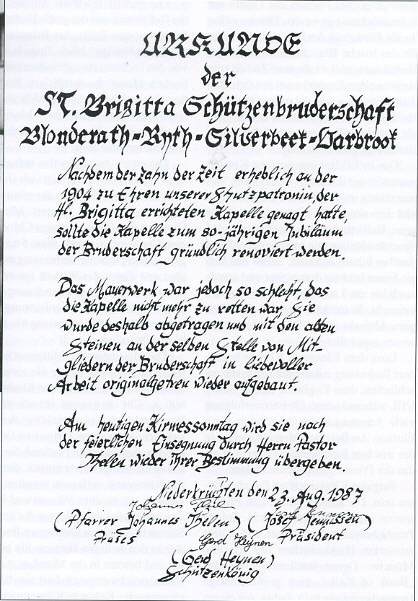 URKUNDE
der
ST. Brigitta Schützenbruderschaft
Blonderath-Ryth-Silverbeek-Varbrook
Nachdem der Zahn der Zeit erheblich an der
1904 zu Ehren unserer Schutzpatronin, der
Hl. Brigitta errichteten Kapelle genagt hatte,
sollte die Kapelle zum 80-jährigen Jubiläum
der Bruderschaft gründlich renoviert werden.
Das Mauerwerk war jedoch so schlecht, das
die Kapelle nicht mehr zu retten war. Sie
wurde deshalb abgetragen und mit den alten
Steinen an der selben Stelle von Mit-
gliedern der Bruderschaft in liebevoller
Arbeit originalgetreu wieder aufgebaut.
Am heutigen Kirmessonntag wird sie nach
der feierlichen Einsegnung durch Herrn Pastor
Thelen wieder ihrer Bestimmung übergeben.
Niederkrüchten den 23. Aug. 1987
(Pfarrer Johannes Thelen) (Josef Jennissen)
Präses Gerd Heynen Präsident
(Gerd Heynen)
Schützenkönig